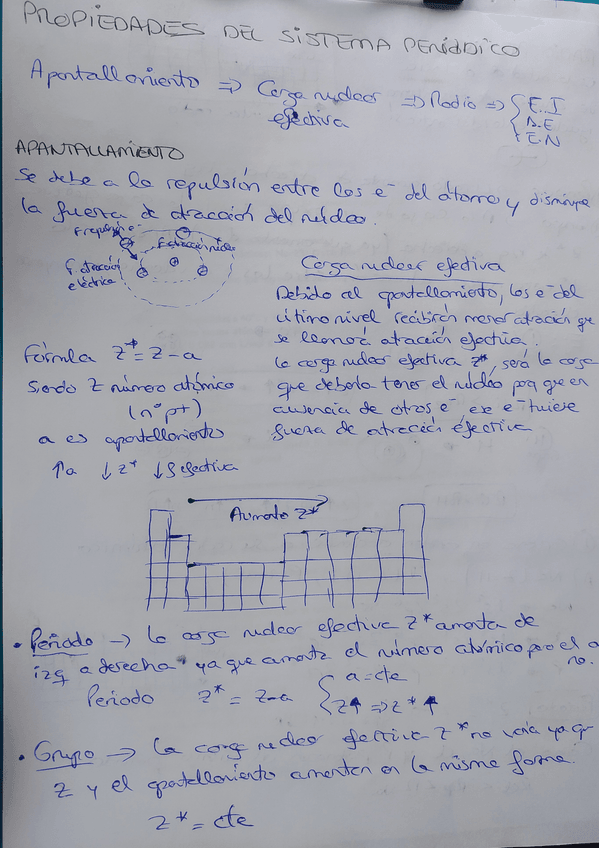 PROPIEDADES DEL SISTEMA PERIÓDICO
Apantallamiento => Carga nuclear => Radio => { E.I
efectiva A.E
E.N
APANTALLAMIENTO
Se debe a la repulsión entre los e⁻ del átomo y disminuye
la fuerza de atracción del núcleo.
F repulsión
F atracción nuclear
F atracción
eléctrica
Carga nuclear efectiva
Debido al apantallamiento, los e⁻ del
último nivel recibirán menor atración que
se llamará atración efectiva.
la carga nuclear efectiva z*, será la carga
que debería tener el núcleo para que en
ausencia de otros e⁻ ese e⁻ tuviese
fuerza de atracción efectiva
Fórmula z* = z - a
siendo z número atómico
(nº p+)
a es apantallamiento
↑a ↓z* ↓F efectiva
Aumento z*
• Periodo -> la carga nuclear efectiva z* aumenta de
izq a derecha ya que aumenta el número atómico pero el a
no.
Periodo z* = z-a { a = cte
z↑ => z*↑
• Grupo -> la carga nuclear efectiva z* no varía ya q
z y el apantallamiento aumentan en la misma forma.
z* = cte